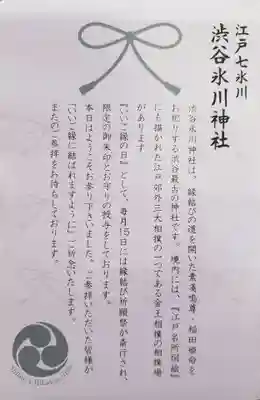 江戸七氷川
渋谷氷川神社
渋谷氷川神社は、縁結びの道を開いた素盞鳴尊・稲田姫命を
お祀りする渋谷最古の神社です。境内には、『江戸名所図絵』
にも描かれた江戸郊外三大相撲の一つである金王相撲の相撲場
があります
『いいご縁の日』として、毎月15日には縁結び祈願祭が斎行され、
限定の御朱印とお守りの授与をしております。
本日はようこそお参り下さいました。ご参拝いただいた皆様が
「いいご縁に結ばれますように」ご祈念いたします。
またのご参拝をお待ちしております。